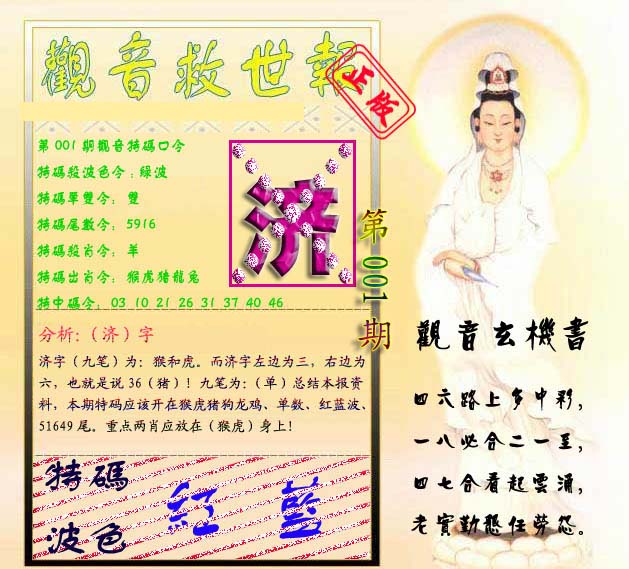 觀音救世報
正版
第001期觀音特碼口令
特碼殺波色令:綠波
特碼單雙令: 雙
特碼尾數令: 5916
特碼殺肖令: 羊
特碼出肖令: 猴虎猪龍兔
特中碼令: 03 10 21 26 31 37 40 46
济
第001期
分析:（济）字
济字（九笔）为：猴和虎。而济字左边为三，右边为
六，也就是说 36（猪）！九笔为：（单）总结本报资
料，本期特码应该开在猴虎猪狗龙鸡、单数、红蓝波、
51649 尾。重点两肖应放在（猴虎）身上！
特碼
波色
紅 藍
觀音玄機書
四六路上多中彩，
一八必合二一至，
四七合看起雲涌，
老實勤懇任勞怨。